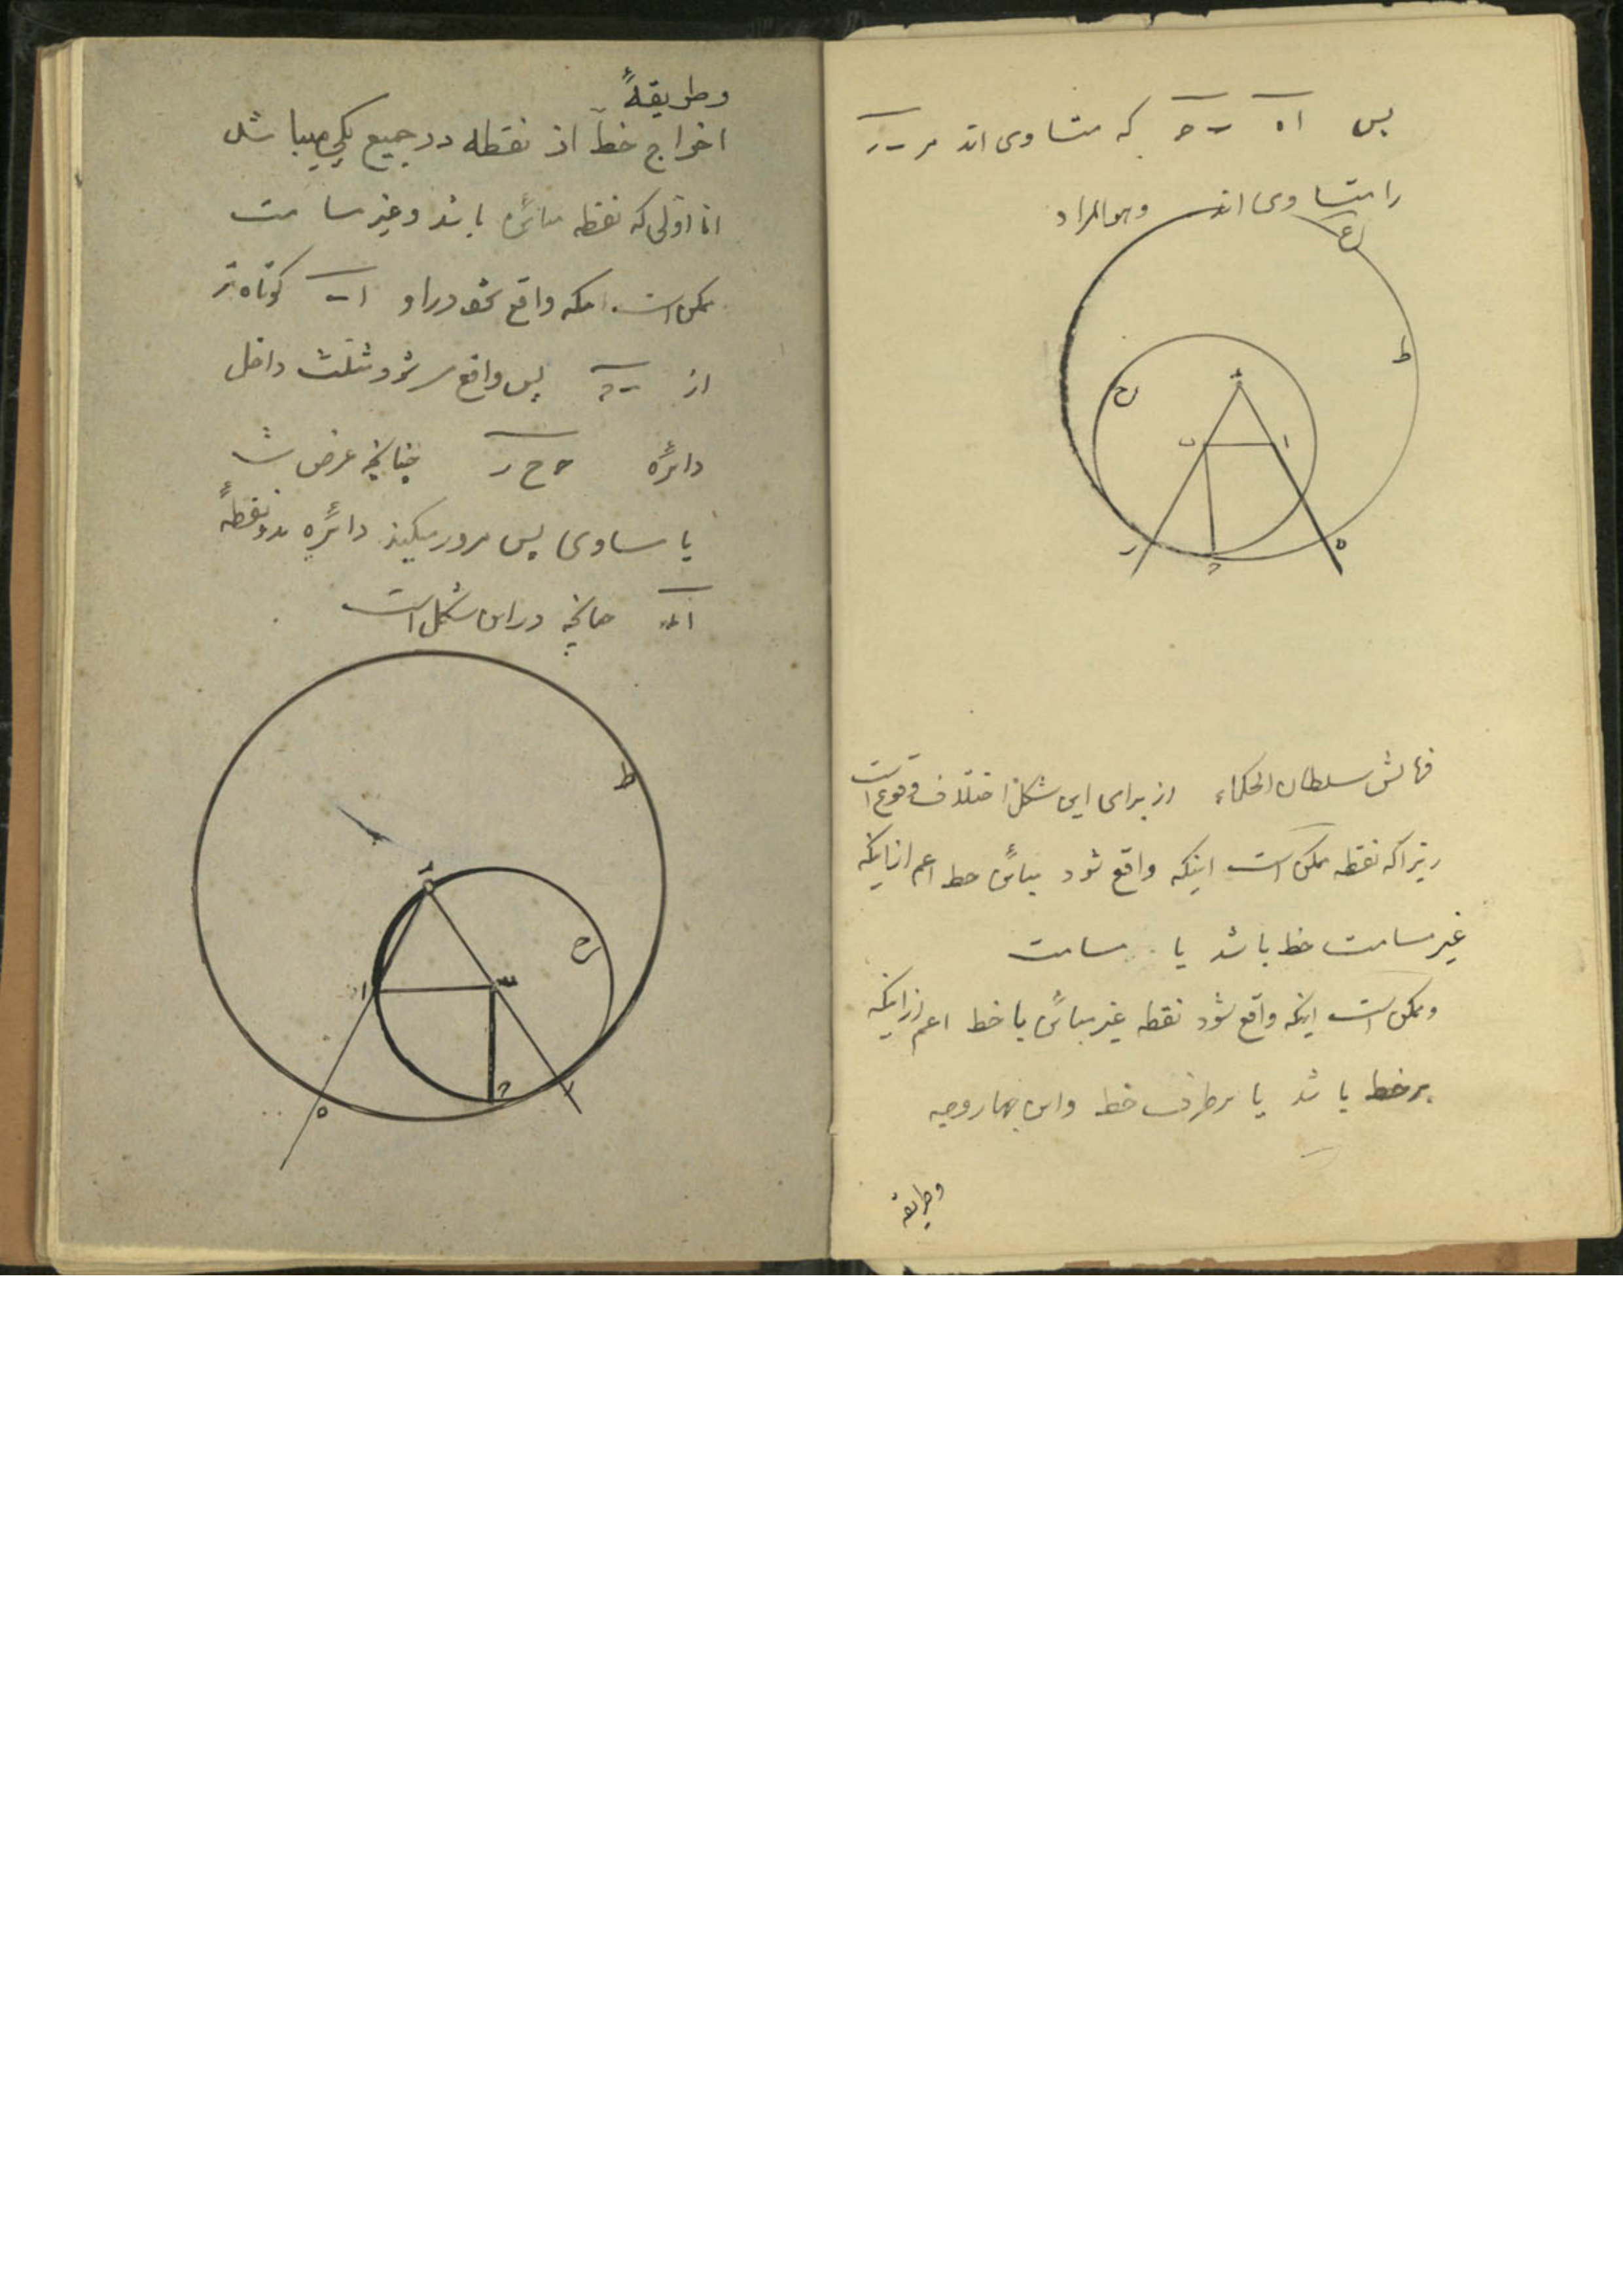 پس اه ب‍ح که متساوی اند مر ب‍ر
را متساوی اند وهوالمراد
ع
ط
ح
ء
ب ا
ر ح ه
سلطان الحکماء از برای این شکل اختلاف وقوع است
زیرا که نقطه ممکن است اینکه واقع شود مبائن خط اعم از اینکه
غیر مسامت خط باشد یا مسامت
و ممکن است اینکه واقع شود نقطه غیر مبائن با خط اعم از اینکه
بر خط باشد یا بر طرف خط واین چهار وجه
وطریقه
وطریقهٔ
اخراج خط از نقطه در جمیع یکی میباشد
اما اولی که نقطه مبائن باشد وغیر مسامت
ممکن است اینکه واقع شود در او اب کوتاه تر
از ب‍ح پس واقع میشود مثلث داخل
دائره ح ح ر چنانچه عرض شد
یا مساوی پس مرور میکند دائره بدو نقطهٔ
اء چنانچه در این شکل است
ط
ء
ح
ا ب
ه ح ر